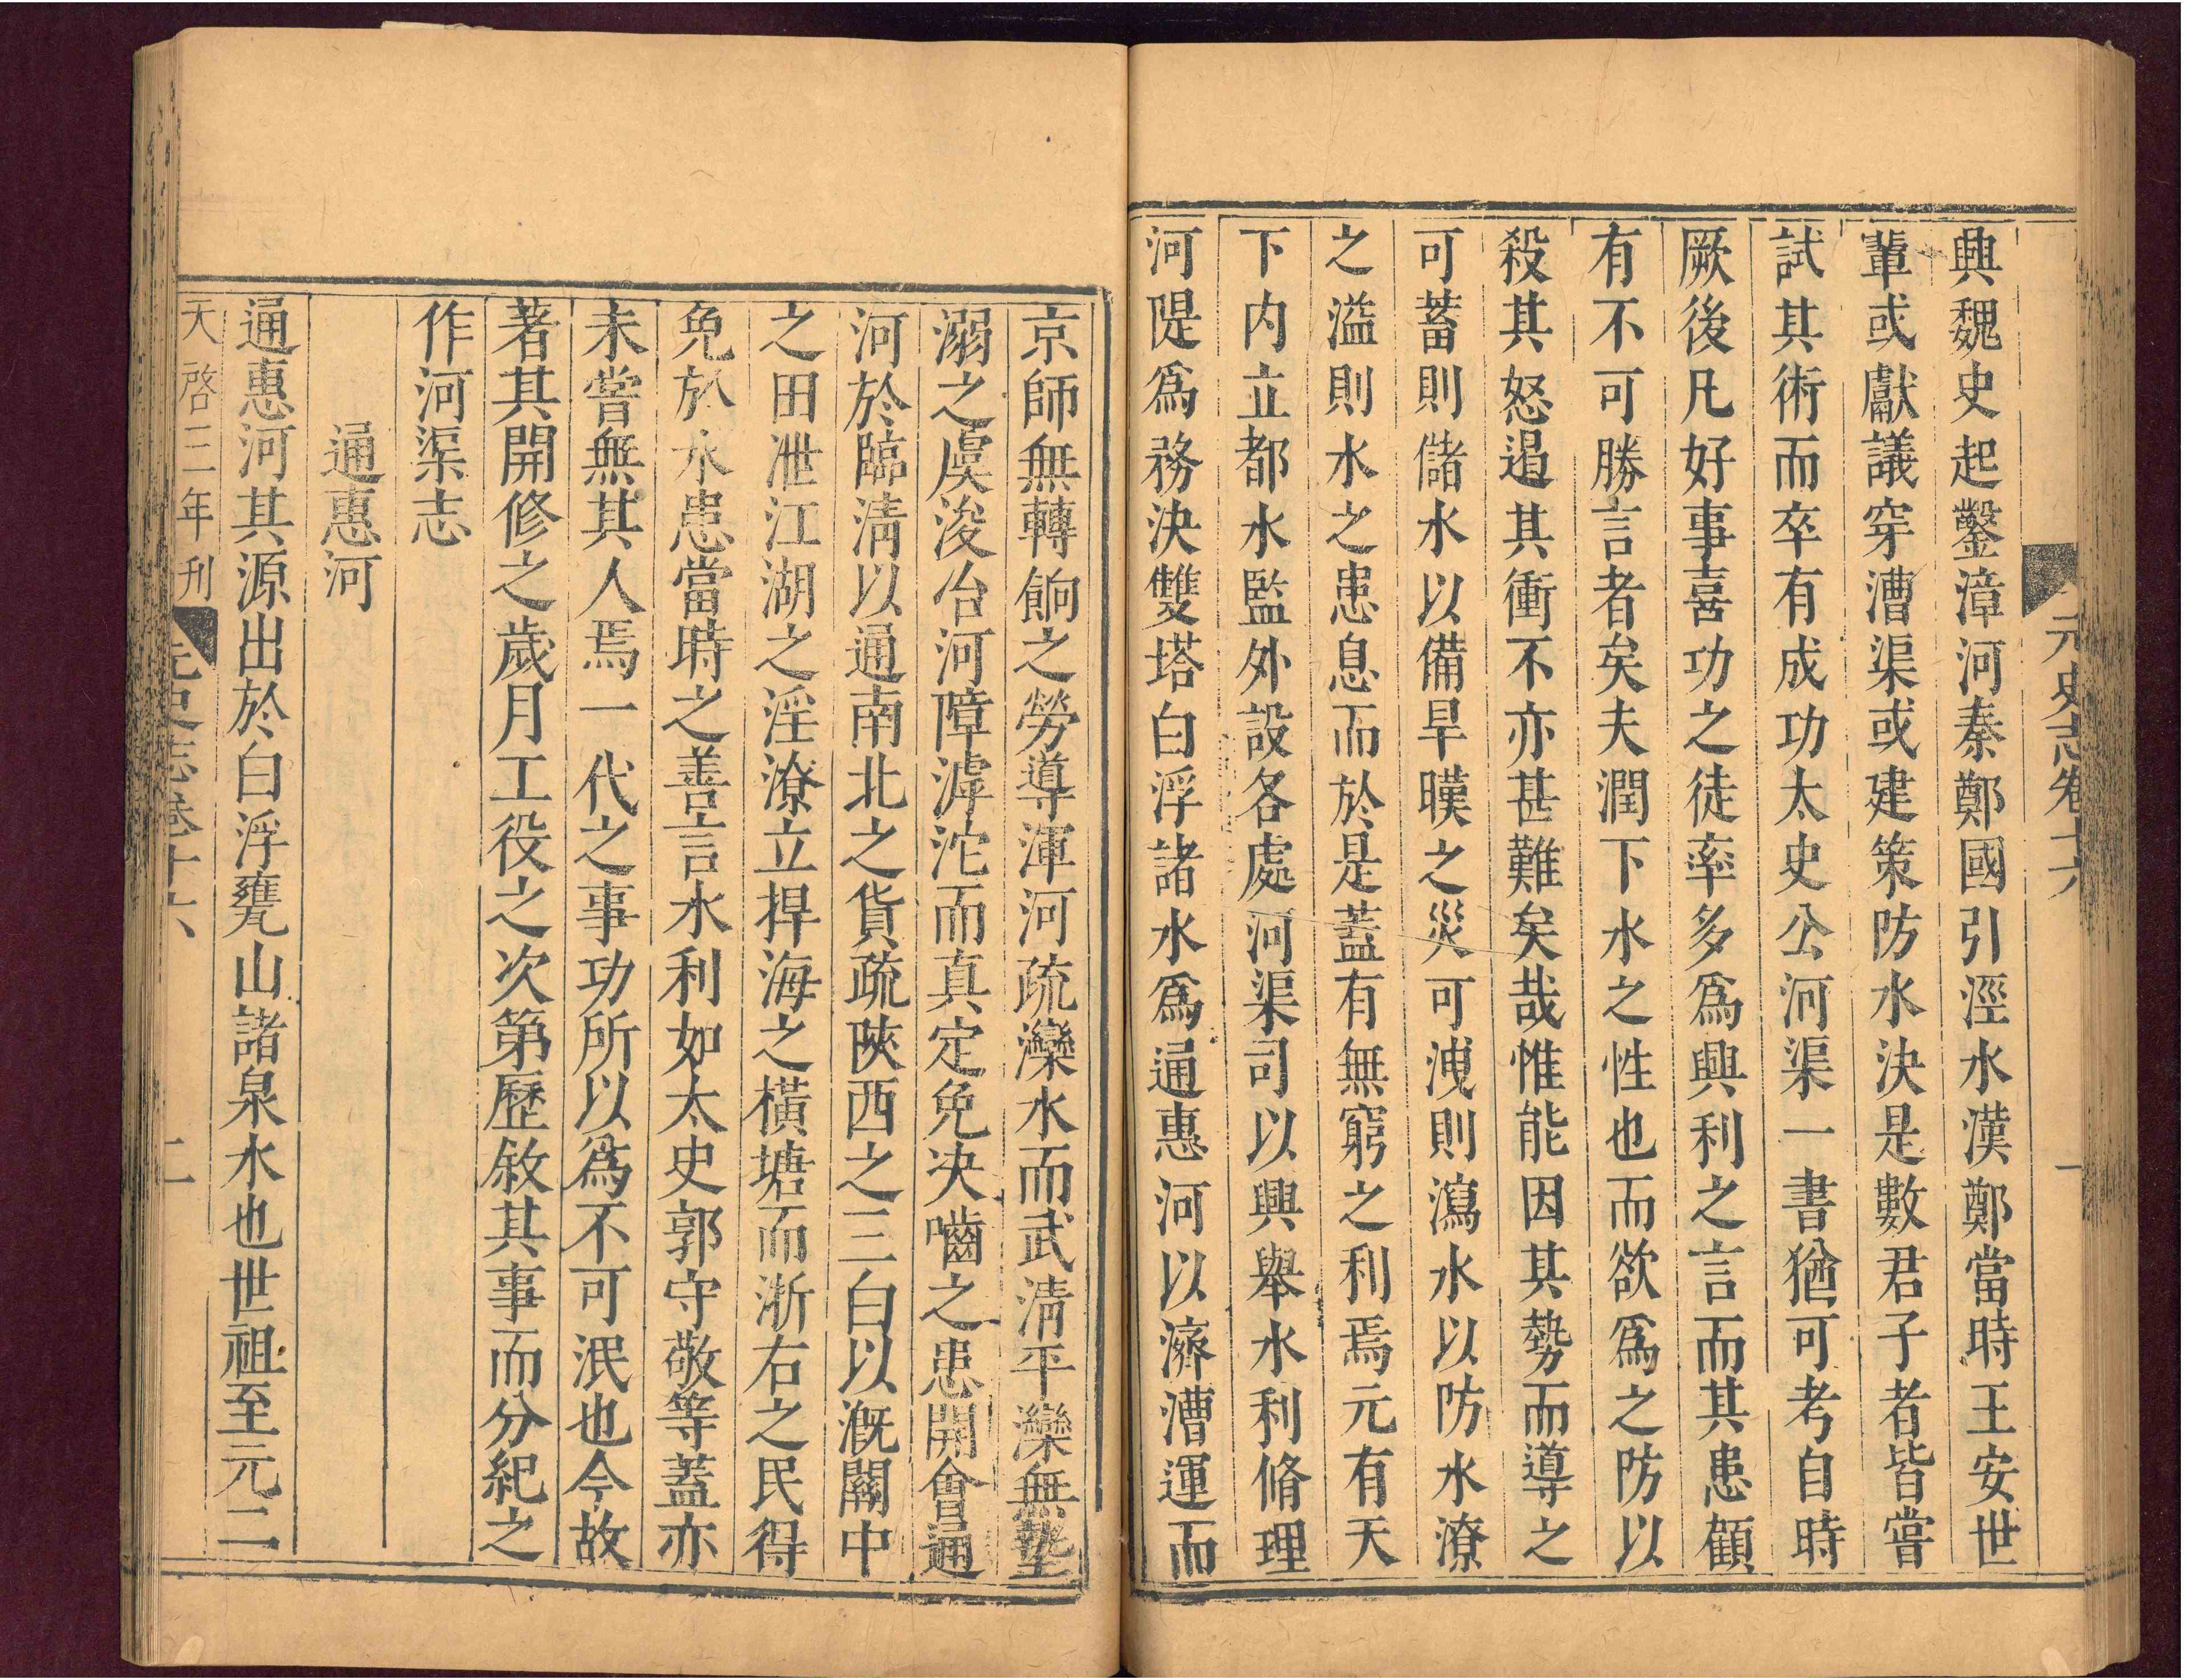 元史志卷十六
一
興魏史起鑿漳河秦鄭國引涇水漢鄭當時王安世
輩或獻議穿漕渠或建策防水決是數君子者皆嘗
試其術而卒有成功太史公河渠一書猶可考自時
厥後凡好事喜功之徒率多爲興利之言而其患顧
有不可勝言者矣夫潤下水之性也而欲爲之防以
殺其怒遏其衝不亦甚難矣哉惟能因其勢而導之
可蓄則儲水以備旱暵之災可洩則瀉水以防水潦
之溢則水之患息而於是蓋有無窮之利焉元有天
下內立都水監外設各處河渠司以興舉水利脩理
河隄爲務決雙塔白浮諸水爲通惠河以濟漕運而
京師無轉餉之勞導渾河疏灤水而武清平灤無墊
溺之虞浚冶河障滹沱而真定免决嚙之患開會通
河於臨清以通南北之貨疏陜西之三白以漑關中
之田泄江湖之淫潦立捍海之橫塘而浙右之民得
免於水患當時之善言水利如太史郭守敬等蓋亦
未嘗無其人焉一代之事功所以爲不可泯也今故
著其開修之歲月工役之次第歷敘其事而分紀之
作河渠志
通惠河
通惠河其源出於白浮甕山諸泉水也世祖至元二
天啓三年刊
元史志卷十六
二